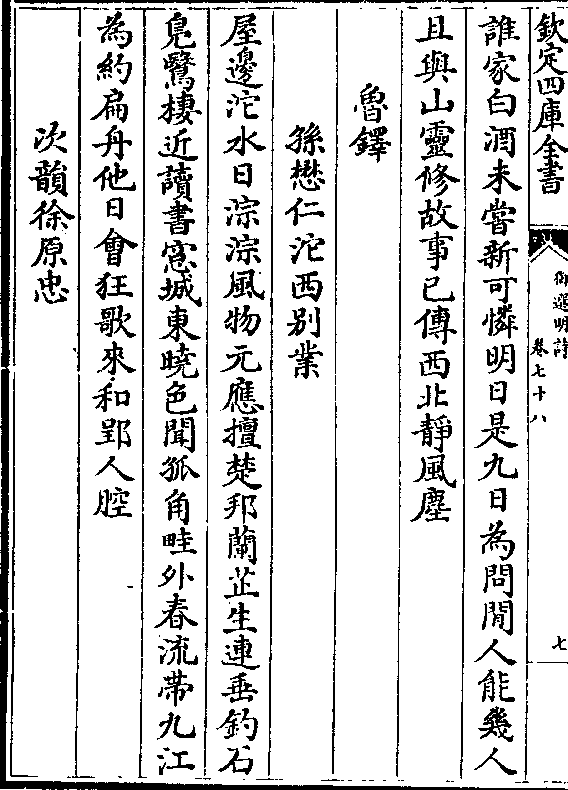 欽定四庫全書
御選明詩 卷七十八
七
誰家白酒未嘗新可憐明日是九日為問閒人能幾人
且與山靈修故事已傳西北靜風塵
魯鐸
孫懋仁沱西别業
屋邊沱水日淙淙風物元應擅楚邦蘭芷生連垂釣石
鳬鷖棲近讀書窓城東曉色聞孤角畦外春流帶九江
為約扁舟他日會狂歌來和郢人腔
次韻徐原忠